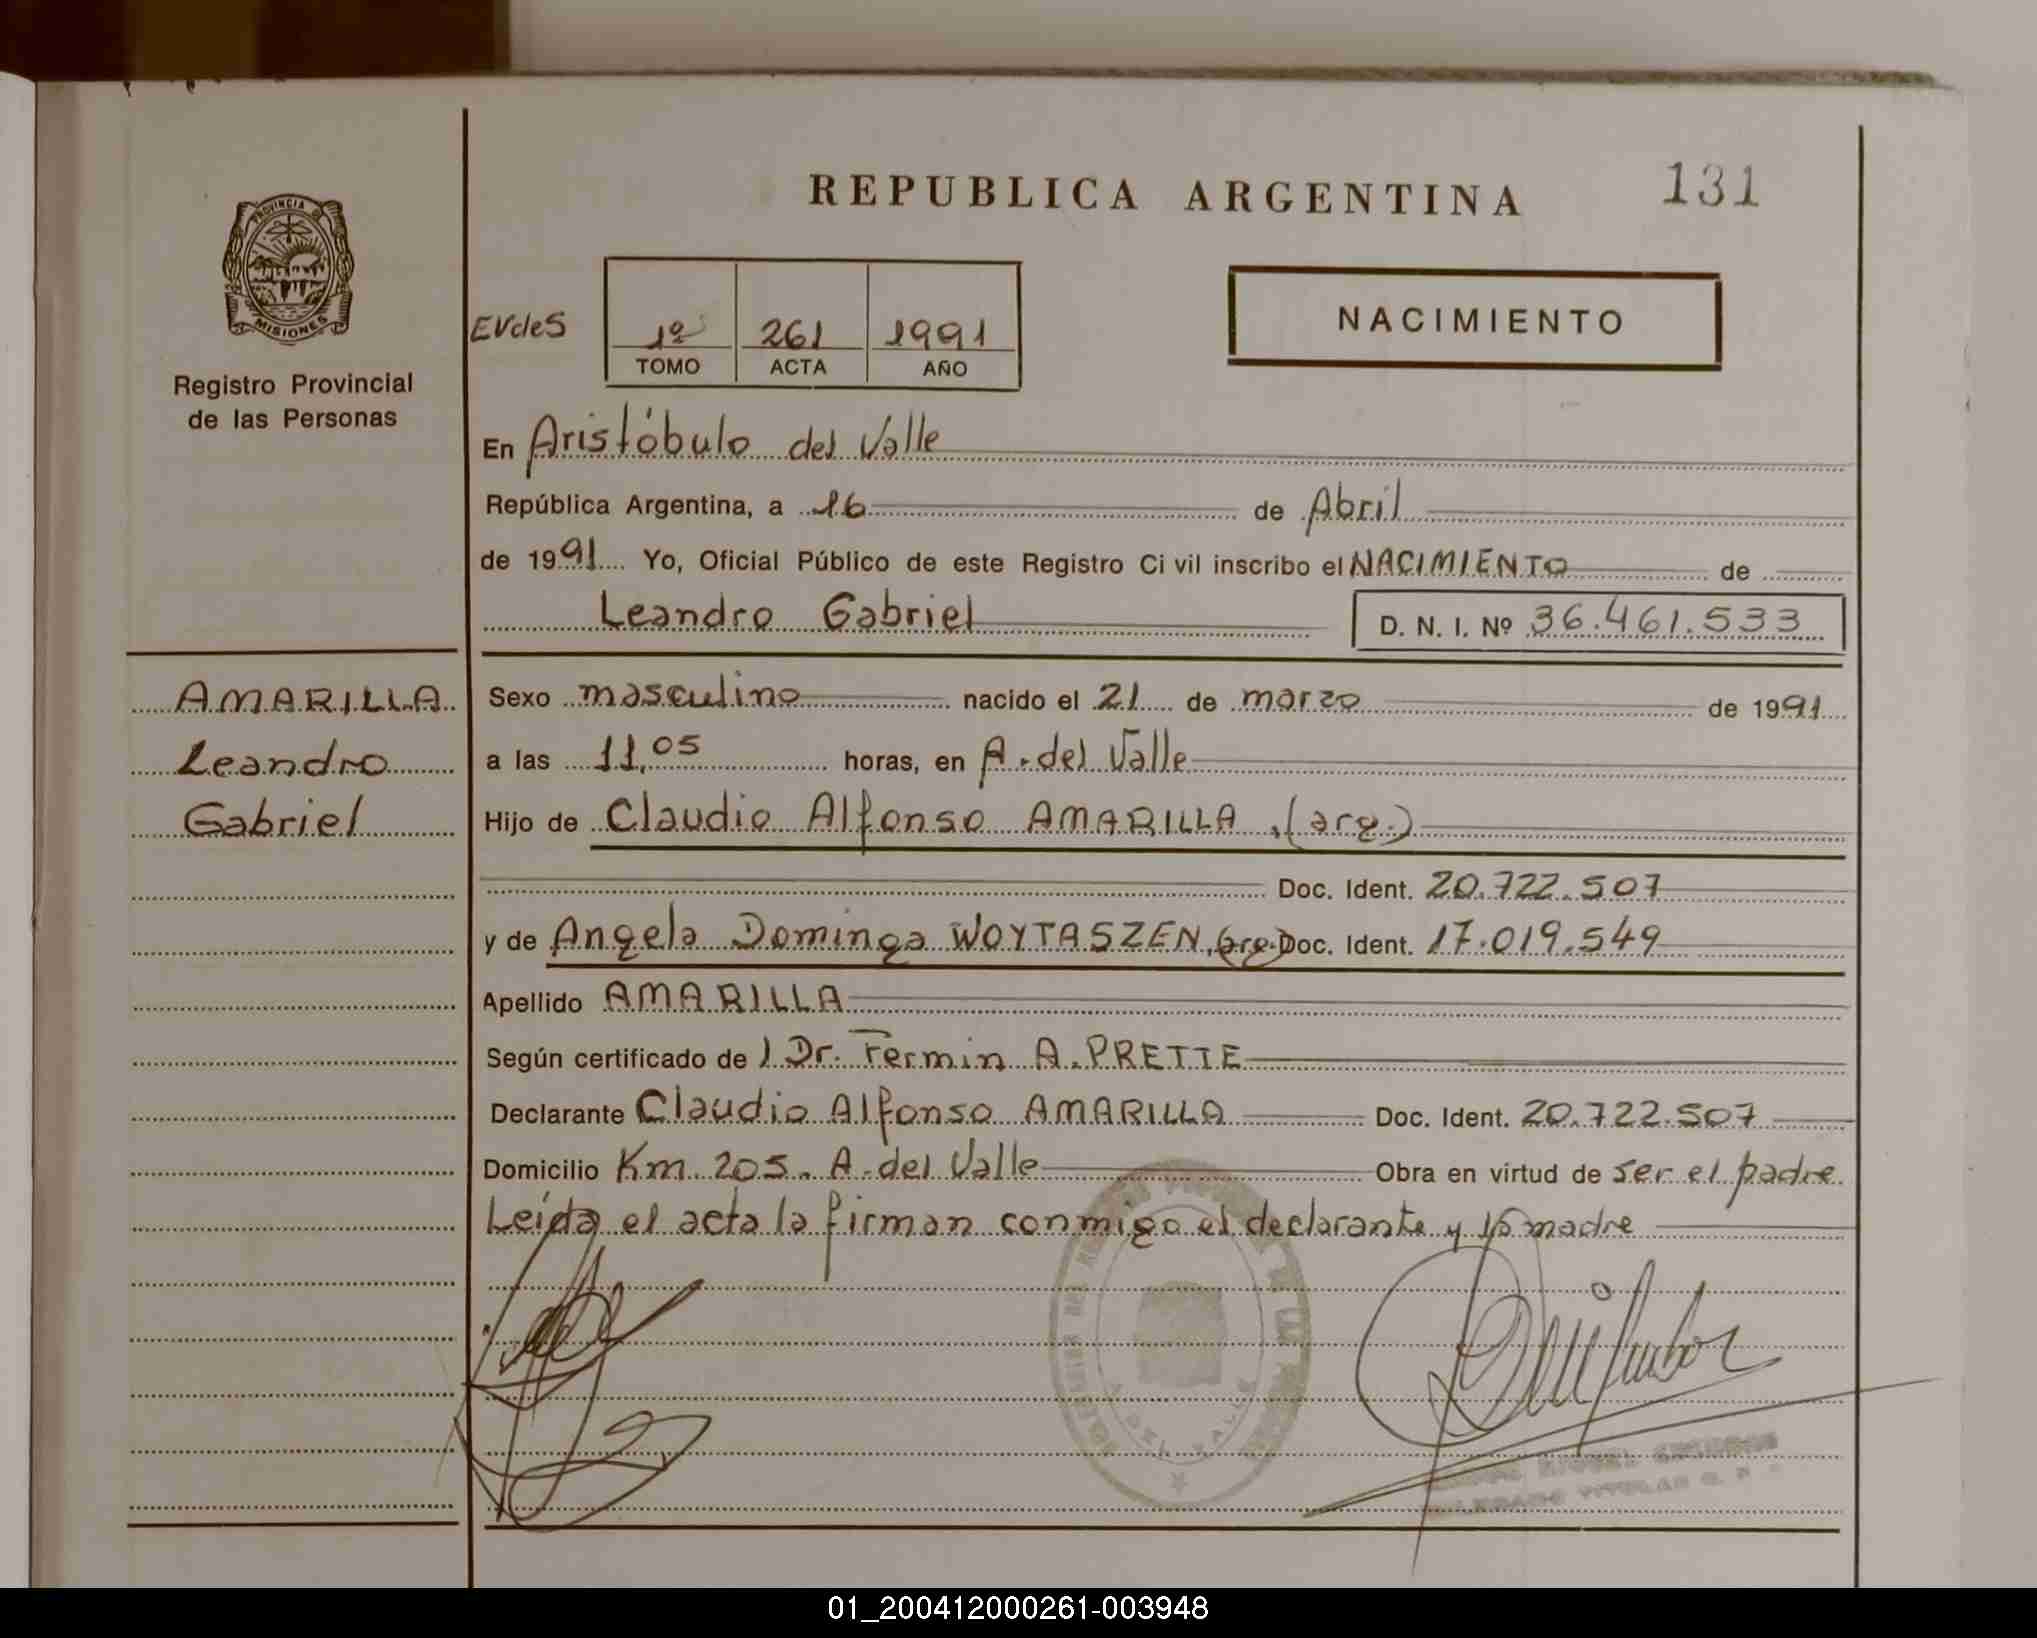 REPUBLICA ARGENTINA
131
PROVINCIA D
MISIONES
Registro Provincial
de las Personas
EVdeS
1º 261 1991
TOMO ACTA AÑO
NACIMIENTO
En Aristóbulo del Valle
República Argentina, a 16 de Abril
de 1991 Yo, Oficial Público de este Registro Ci vil inscribo el NACIMIENTO de
Leandro Gabriel D. N. I. Nº 36.461.533
AMARILLA
Leandro
Gabriel
Sexo masculino nacido el 21 de marzo de 1991
a las 11,05 horas, en A. del Valle
Hijo de Claudio Alfonso AMARILLA, (arg.)
Doc. Ident. 20.722.507
y de Angela Dominga WOYTASZEN, (arg.) Doc. Ident. 17.019.549
Apellido AMARILLA
Según certificado de l Dr. Fermin A. PRETTE
Declarante Claudio Alfonso AMARILLA Doc. Ident. 20.722.507
Domicilio Km. 205. A. del Valle Obra en virtud de ser el padre
Leída el acta la firman conmigo el declarante y la madre
01_200412000261-003948